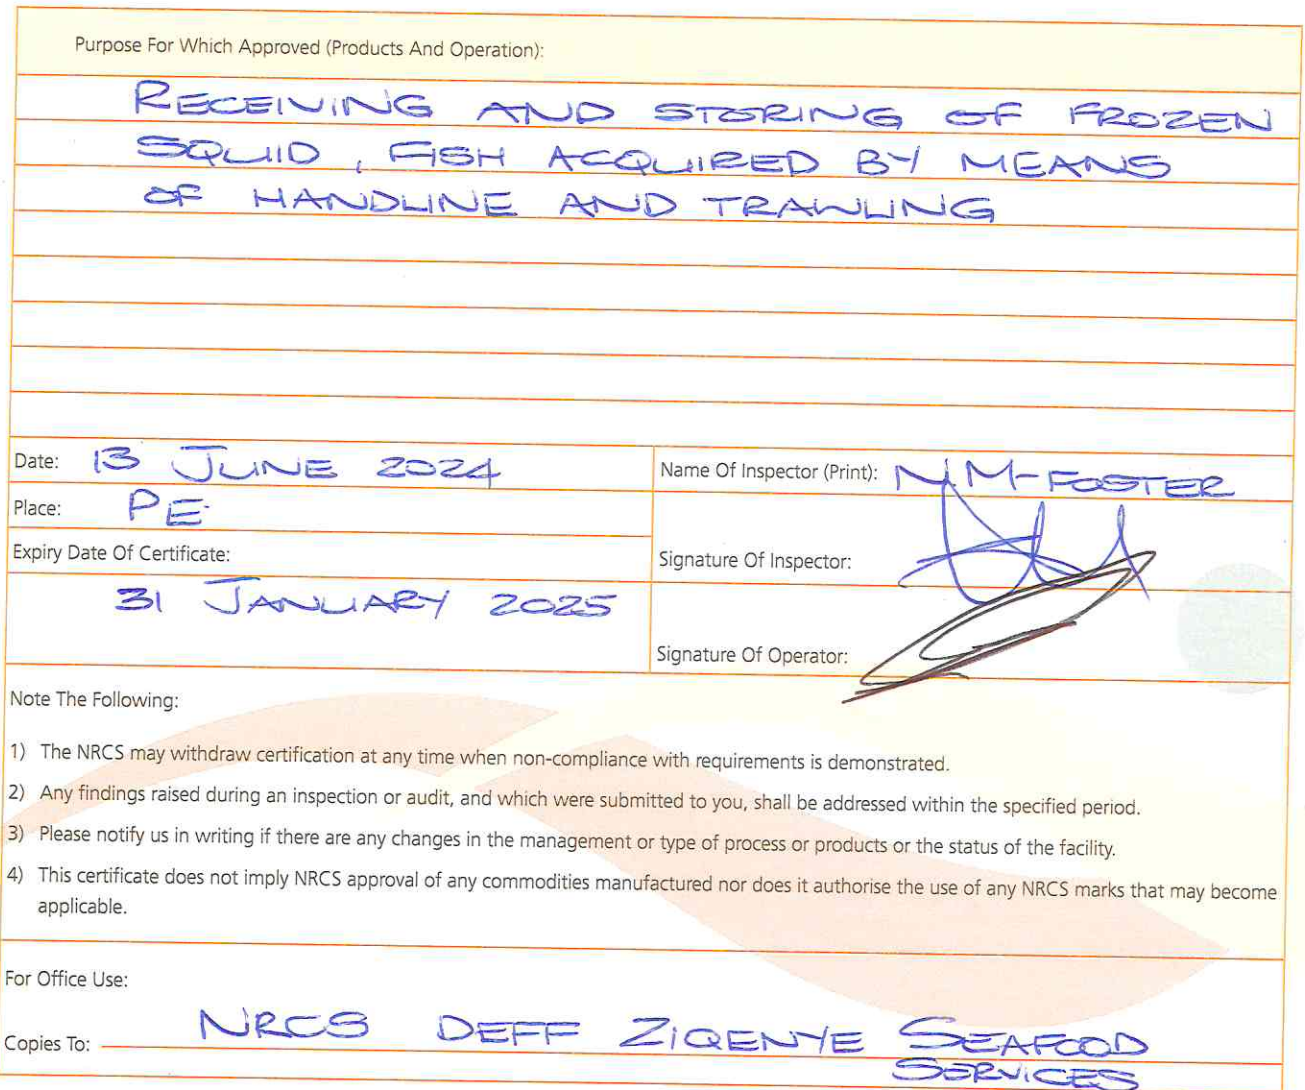 Purpose For Which Approved (Products And Operation):
RECEIVING AND STORING OF FROZEN
SQUID, FISH ACQUIRED BY MEANS
OF HANDLINE AND TRAWLING
Date: 13 JUNE 2024
Name Of Inspector (Print): N M-FOSTER
Place: PE
Expiry Date Of Certificate:
Signature Of Inspector:
31 JANUARY 2025
Signature Of Operator:
Note The Following:
1) The NRCS may withdraw certification at any time when non-compliance with requirements is demonstrated.
2) Any findings raised during an inspection or audit, and which were submitted to you, shall be addressed within the specified period.
3) Please notify us in writing if there are any changes in the management or type of process or products or the status of the facility.
4) This certificate does not imply NRCS approval of any commodities manufactured nor does it authorise the use of any NRCS marks that may become
applicable.
For Office Use:
Copies To: NRCS DEFF ZIQENYE SEAFOOD
SERVICES